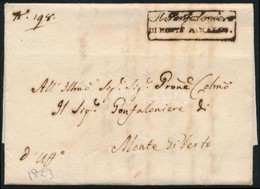 N.° 198.
Il Gonfaloniere
DI MONTE
All' Illmo Sig. Sig. Prone Colmo
Il Sig. Gonfaloniere di
d'Uff°
Monte di Verto
1823